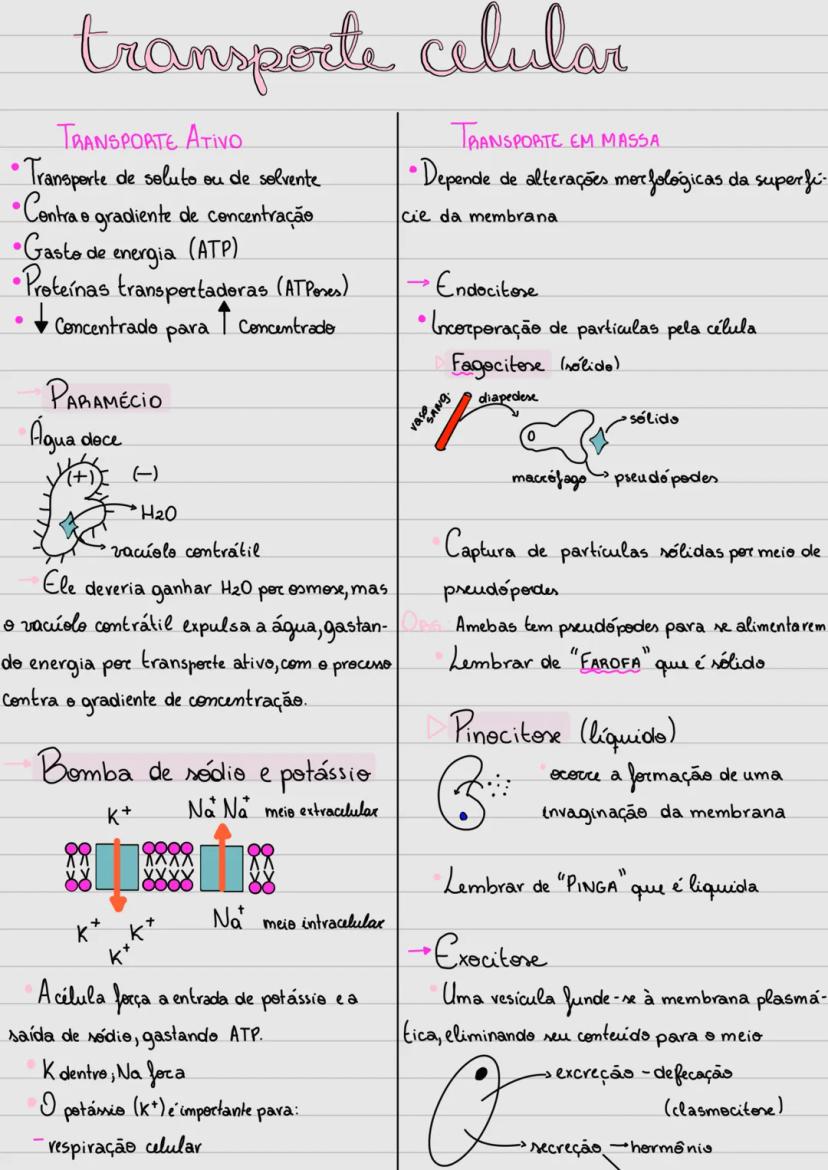 transporte celular
TRANSPORTE ATIVO
• Transporte de soluto ou de solvente
• Contra o gradiente de concentração
• Gasto de energia (ATP)
• Proteínas transportadoras (ATPases)
• ↓ Concentrado para ↑ Concentrado
→ PARAMÉCIO
• Água doce
(+) (-)
→ H2O
→ vacúolo contrátil
→ Ele deveria ganhar H2O por osmose, mas
o vacúolo contrátil expulsa a água, gastan-
do energia por transporte ativo, com o processo
contra o gradiente de concentração.
→ Bomba de sódio e potássio
K+ Na+ Na+ meio extracelular
Na+ meio intracelular
K+ K+
K+
• A célula força a entrada de potássio e a
saída de sódio, gastando ATP.
• K dentro; Na fora
• O potássio (K+) é importante para:
- respiração celular
TRANSPORTE EM MASSA
• Depende de alterações morfológicas da superfí-
cie da membrana
→ Endocitose
• Incorporação de partículas pela célula
▷ Fagocitose (sólido)
vaso sang. diapedese
→ sólido
macrófago → pseudópodes
• Captura de partículas sólidas por meio de
pseudópodes
OBS: Amebas tem pseudópodes para se alimentarem
• Lembrar de "FAROFA" que é sólido
▷ Pinocitose (líquido)
• ocorre a formação de uma
invaginação da membrana
• Lembrar de "PINGA" que é líquida
→ Exocitose
• Uma vesícula funde-se à membrana plasmá-
tica, eliminando seu conteúdo para o meio
→ excreção - defecação
(clasmocitose)
→ secreção → hormônio